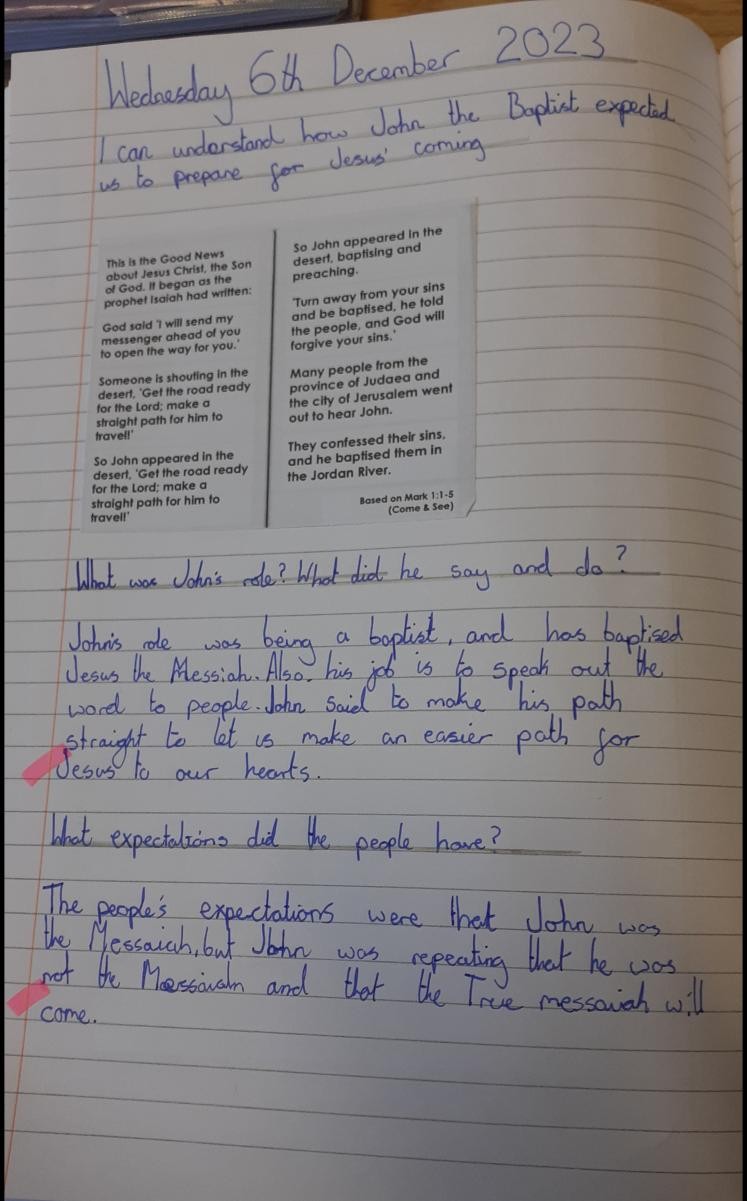 Wednesday 6th December 2023
I can understand how John the Baptist expected
us to prepare for Jesus' coming
This is the Good News
about Jesus Christ, the Son
of God. It began as the
prophet Isaiah had written:
God said 'I will send my
messenger ahead of you
to open the way for you.'
Someone is shouting in the
desert, 'Get the road ready
for the Lord; make a
straight path for him to
travel!'
So John appeared in the
desert, 'Get the road ready
for the Lord; make a
straight path for him to
travel!'
So John appeared in the
desert, baptising and
preaching.
'Turn away from your sins
and be baptised, he told
the people, and God will
forgive your sins.'
Many people from the
province of Judaea and
the city of Jerusalem went
out to hear John.
They confessed their sins,
and he baptised them in
the Jordan River.
Based on Mark 1:1-5
(Come & See)
What was John's role? What did he say and do?
John's role was being a baptist, and has baptised
Jesus the Messiah. Also, his job is to speak out the
word to people. John said to make his path
straight to let us make an easier path for
Jesus to our hearts.
What expectations did the people have?
The people's expectations were that John was
the Messaiah, but John was repeating that he was
not the and that the True messaiah will
come.